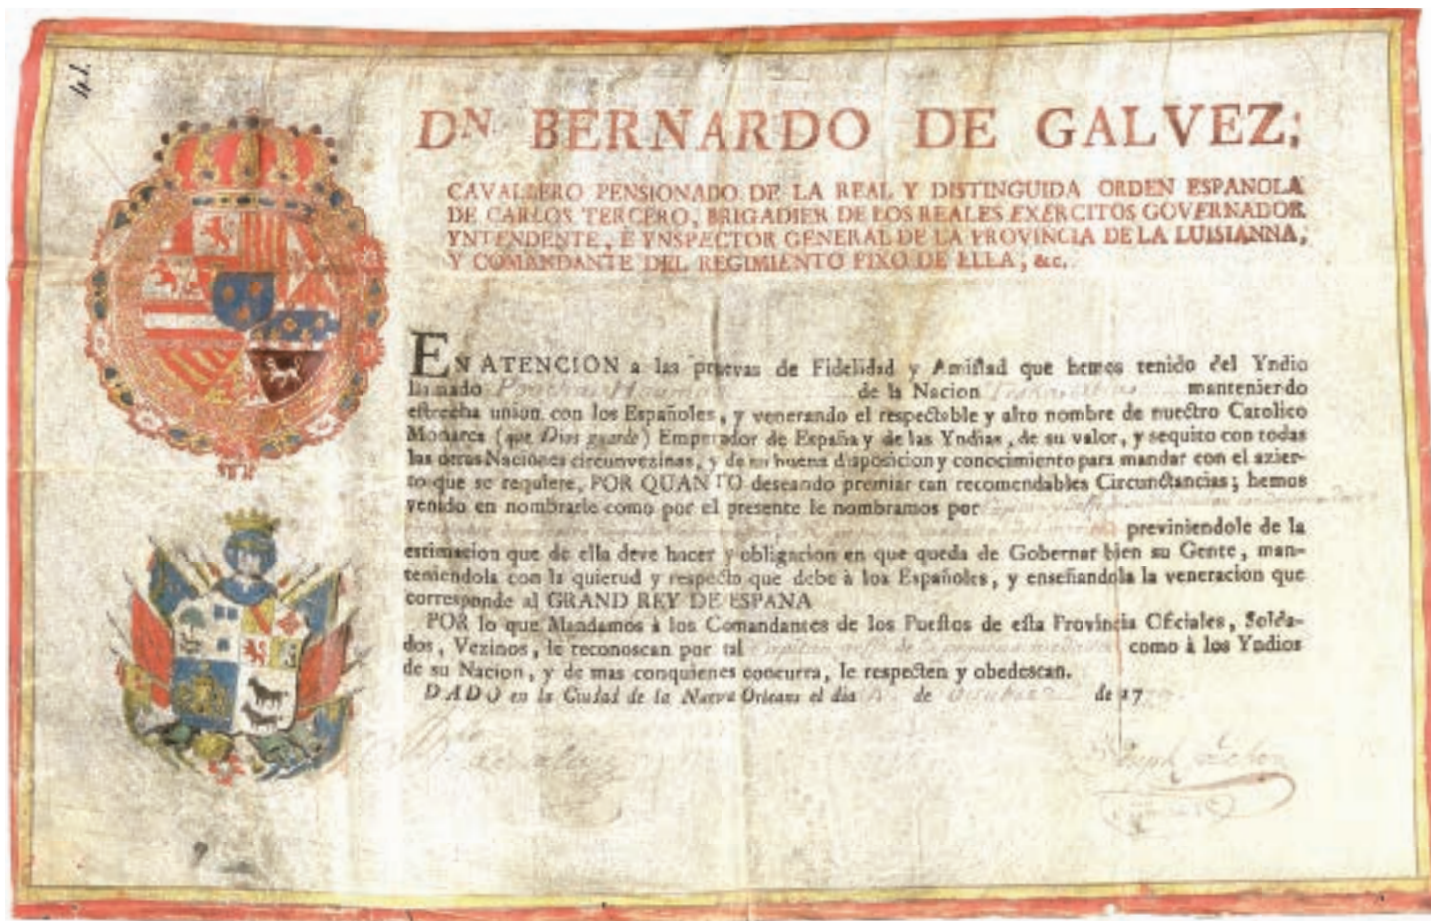 41.
DN. BERNARDO DE GALVEZ;
CAVALLERO PENSIONADO DE LA REAL Y DISTINGUIDA ORDEN ESPANOLA
DE CARLOS TERCERO, BRIGADIER DE LOS REALES EXERCITOS GOVERNADOR,
YNTENDENTE, É YNSPECTOR GENERAL DE LA PROVINCIA DE LA LUISIANNA,
Y COMANDANTE DEL REGIMIENTO FIXO DE ELLA, &c.
EN ATENCION a las pruevas de Fidelidad y Amistad que hemos tenido del Yndio
llamado de la Nacion manteniendo
estrecha union con los Españoles, y venerando el respectable y alto nombre de nuestro Catolico
Monarca (que Dios guarde) Emperador de España y de las Yndias, de su valor, y sequito con todas
las otras Naciones circunvezinas, y de su buena disposicion y conocimiento para mandar con el azier-
to que se requiere, POR QUANTO deseando premiar tan recomendables Circunstancias; hemos
venido en nombrarle como por el presente le nombramos por
previniendole de la
estimacion que de ella deve hacer y obligacion en que queda de Gobernar bien su Gente, man-
teniendola con la quietud y respecto que debe à los Españoles, y enseñandola la veneracion que
corresponde al GRAND REY DE ESPANA
POR lo que Mandamos à los Comandantes de los Puestos de esta Provincia Oficiales, Solda-
dos, Vezinos, le reconoscan por tal como à los Yndios
de su Nacion, y de mas conquienes concurra, le respecten y obedescan.
DADO en la Ciudad de la Nueva Orleans el dia de de 17